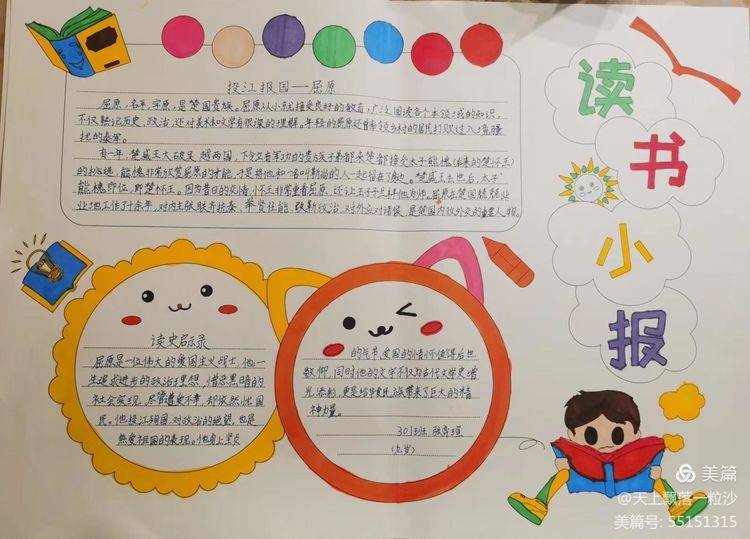 投江报国——屈原
屈原,名平,字原,是楚国贵族。屈原从小就接受良好的教育,广泛阅读各个领域的知识,
不仅熟记历史、政治,还对美术和文学有很深的理解。年轻的屈原还曾率领乡村的居民打败过入境骚
扰的秦军。
有一年,楚威王大破吴越两国,下令有军功的贵族子弟都来楚都接受太子能槐(后来的楚怀王)
的挑选,能槐非常欣赏屈原的才能,于是将他和一名叫靳尚的人一起留在了身边。楚威王去世后,太子
能槐即位,即楚怀王。因为昔日的交情,小怀王非常重看屈原,还让王子子兰拜他为师。屈原在楚国兢兢业
业地工作了十余年,对内主张联齐抗秦,举贤任能,改新政治,对外应对诸侯,是楚国内政外交的重要人物。
读史启示录
屈原是一位伟大的爱国主义战士,他一
生追求进步的政治理想,憎恶黑暗的
社会实现,尽管遭受不幸,却依然忧国
民。他投江殉国,对政治的绝望,也是
热爱祖国的表现。他身上坚贞
的气节,爱国的情怀值得后世
敬仰,同时他的文字不仅为古代文学史增
光添彩,更是给华夏民族带来了巨大的精
神力量。
301班
(九岁)
读
书
小
报
美篇
@天上飘落一粒沙
美篇号: 55151315